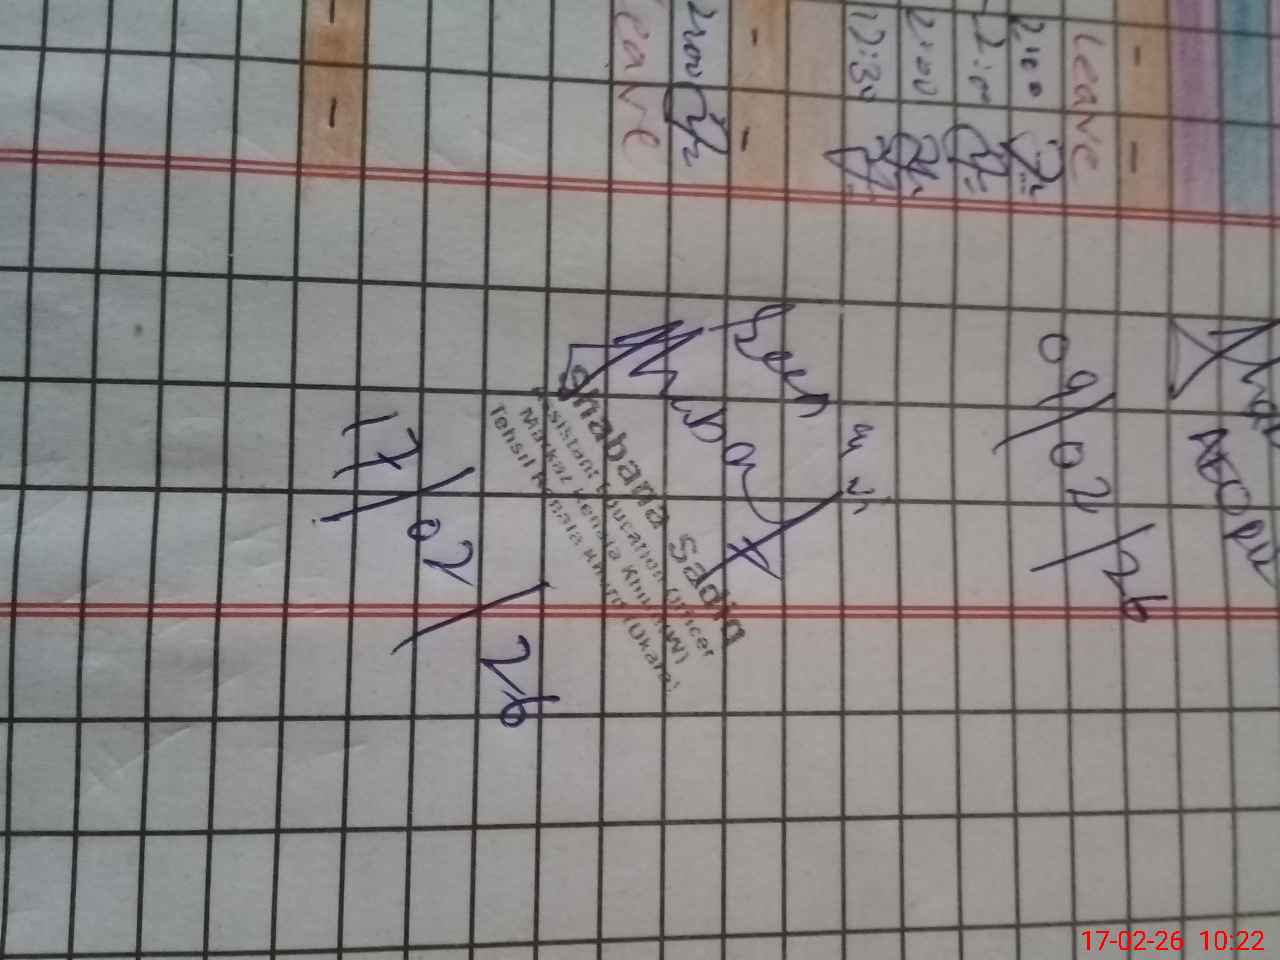 AEO
Leave
09/02/26
2:00
2:00
2:00
12:30
Seen
2:00
Leave
Shabana Sadia
Assistant Education Officer
Markaz Renala Khurd (W)
Tehsil Renala Khurd (Okara)
17/02/26
17-02-26 10:22